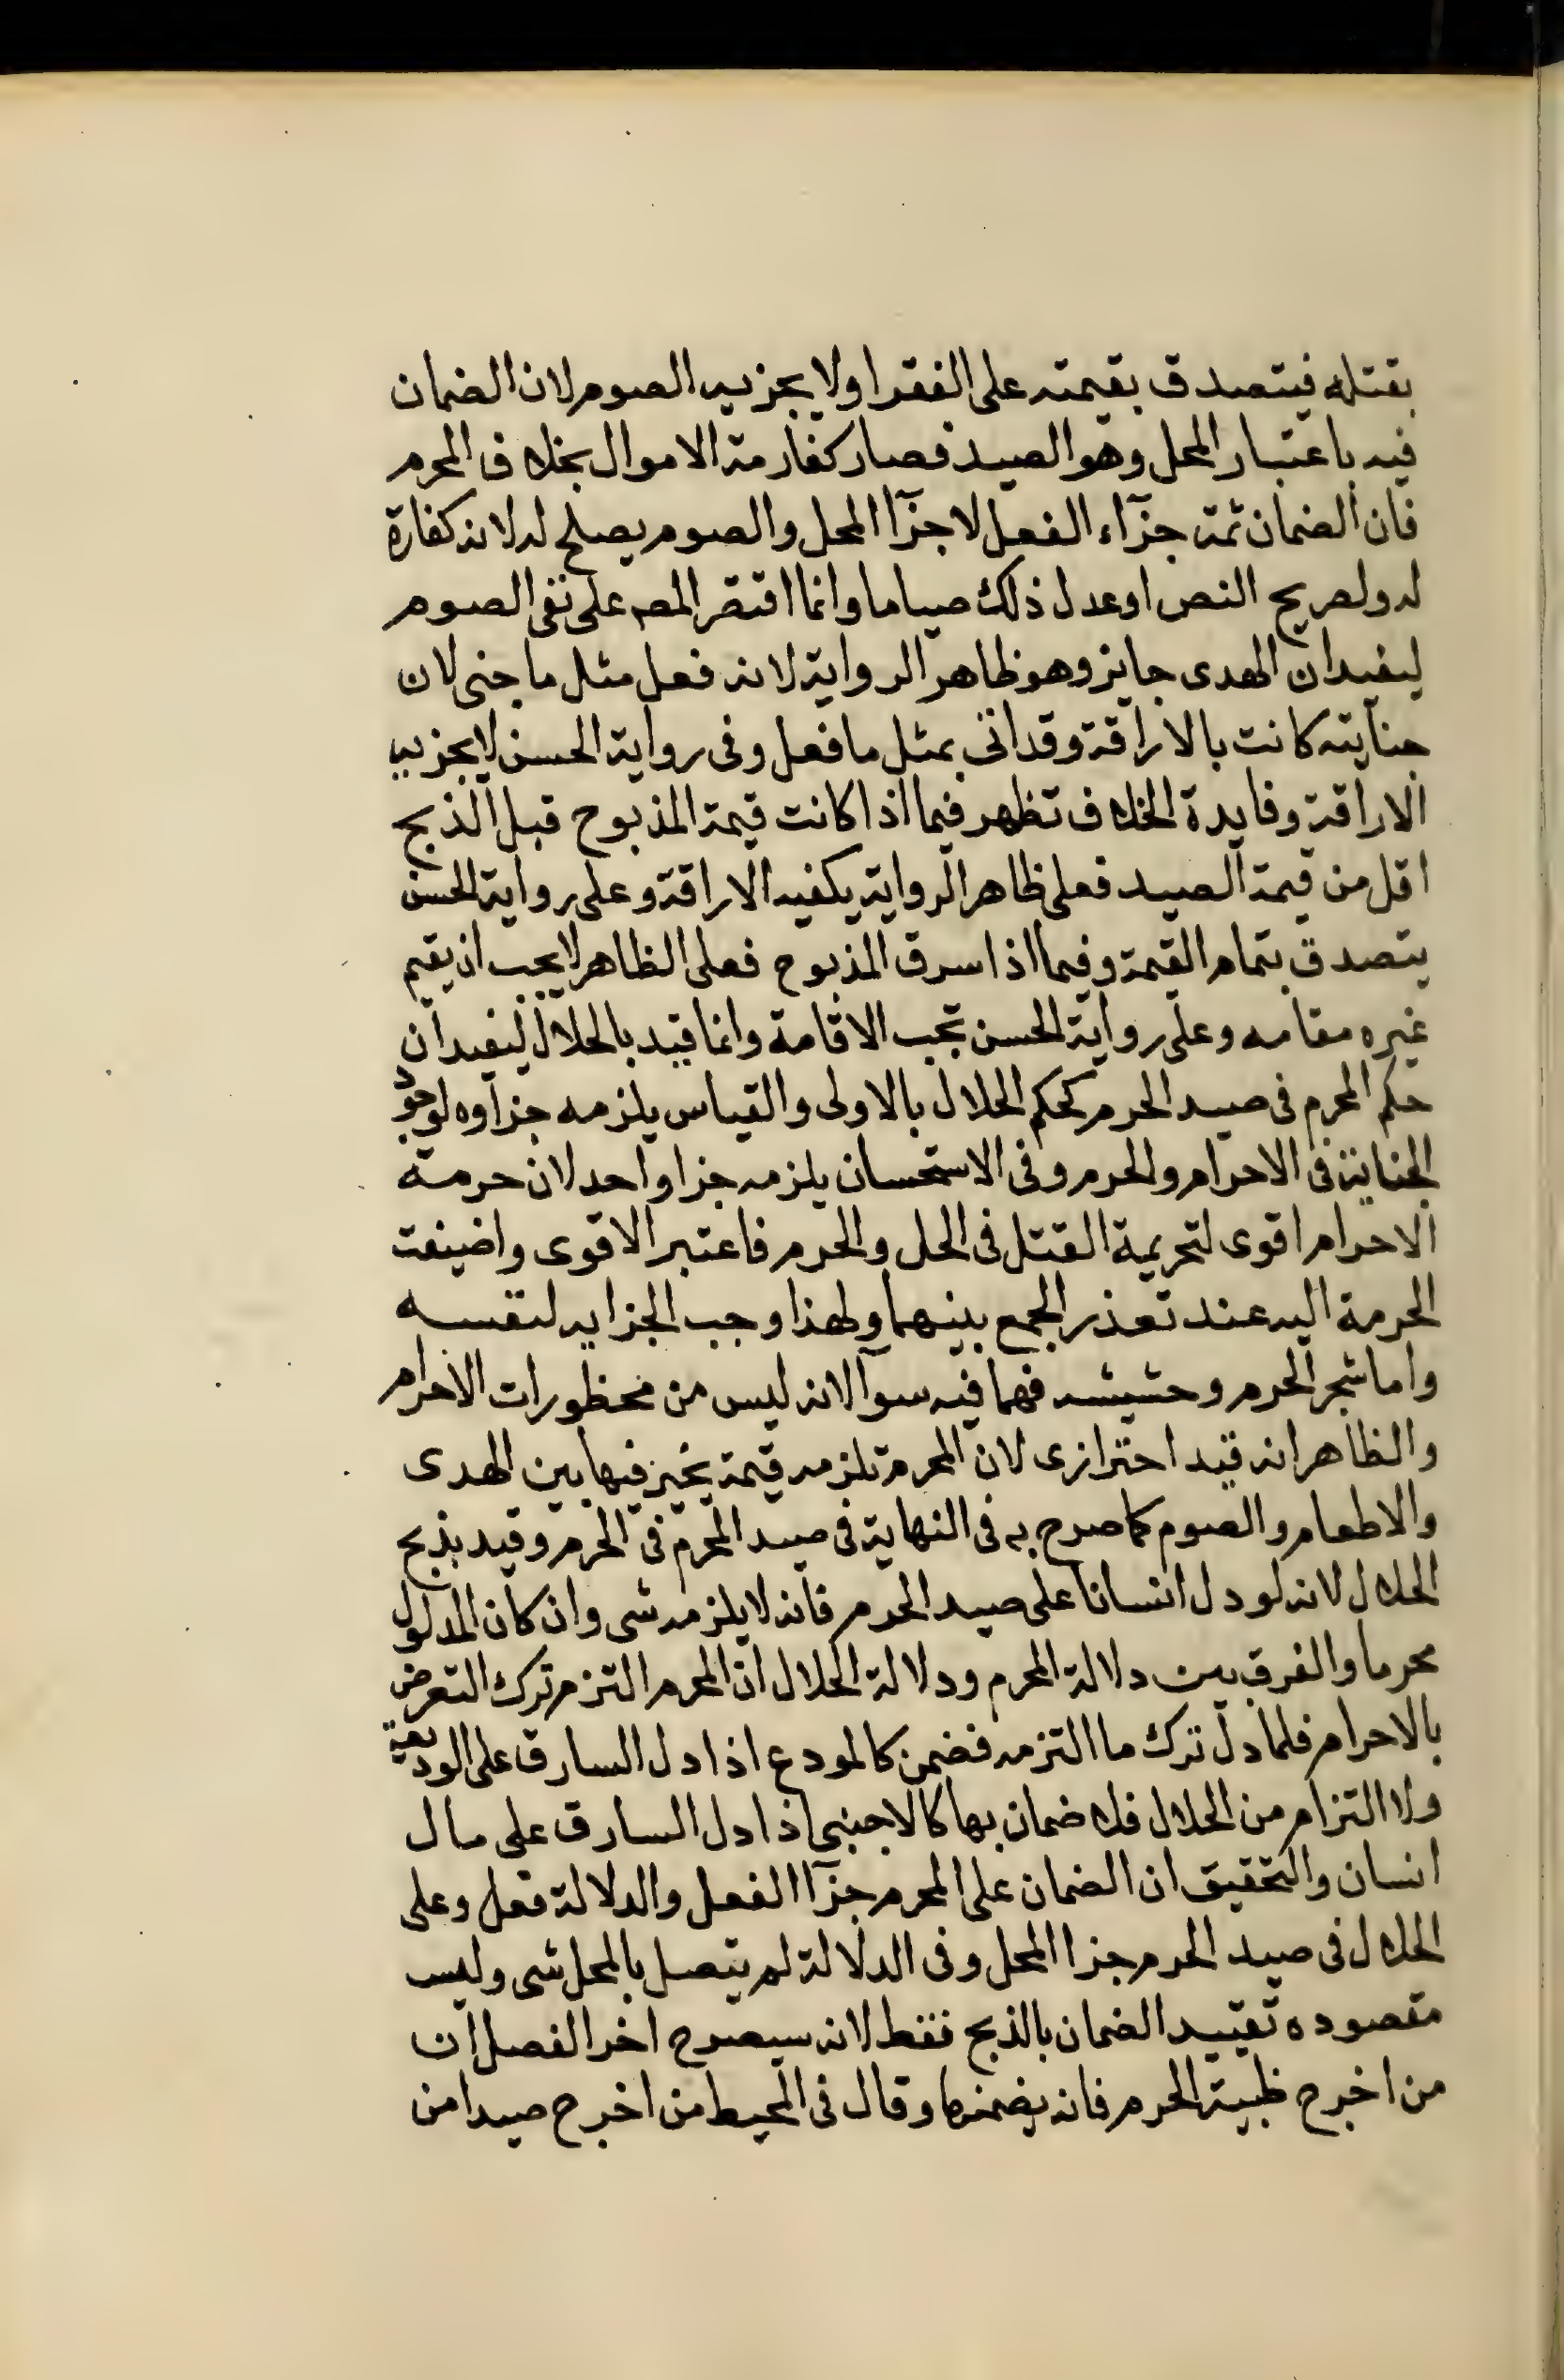 بقتله فيتصدق بقيمته على الفقرا ولا يجزيه الصوم لان الضمان
فيه باعتبار المحل وهو الصيد فصار كغرامة الاموال بخلاف المحرم
فان الضمان ثمة جزآء الفعل لا جزآ المحل والصوم يصلح له لانه كفارة
له ولصريح النص او عدل ذلك صياما وانما اقتصر المصـ على نفى الصوم
ليفيد ان الهدى جايز وهو ظاهر الرواية لانه فعل مثل ما جنى لان
جنايته كانت بالاراقة وقد اتى بمثل ما فعل وفى رواية الحسن لا يجزيه
الاراقة وفايدة الخلاف تظهر فيما اذا كانت قيمة المذبوح قبل الذبح
اقل من قيمة الصيد فعلى ظاهر الرواية يكفيه الاراقة وعلى رواية الحسن
يتصدق بتمام القيمة وفيما اذا سرق المذبوح فعلى الظاهر لا يجب ان يقيم
غيره مقامه وعلى رواية الحسن تجب الاقامة وانما قيد بالحلال ليفيد ان
حكم المحرم فى صيد الحرم كحكم الحلال بالاولى والقياس يلزمه جزاوه لوجود
الجناية فى الاحرام والحرم وفى الاستحسان يلزمه جزا واحد لان حرمة
الاحرام اقوى لتحريمة القتل فى الحل والحرم فاعتبر الاقوى واضيفت
الحرمة اليه عند تعذر الجمع بينهما ولهذا وجب الجزا به لنفسه
واما شجر الحرم وحشيشه فهما فيه سوآ لانه ليس من محظورات الاحرام
والظاهر انه قيد احترازى لان المحرم تلزمه قيمة يخير فيها بين الهدى
والاطعام والصوم كما صرح به فى النهاية فى صيد المحرم فى الحرم وقيد بذبح
الحلال لانه لو دل انسانا على صيد الحرم فانه لا يلزمه شى وان كان المدلول
محرما والفرق بين دلالة المحرم ودلالة الحلال ان المحرم التزم ترك التعرض
بالاحرام فلما دل ترك ما التزمه فضمن كالمودع اذا دل السارق على الوديعة
ولا التزام من الحلال فلا ضمان بها كالاجنبى اذا دل السارق على مال
انسان والتحقيق ان الضمان على المحرم جزآ الفعل والدلالة فعل وعلى
الحلال فى صيد الحرم جزا المحل وفى الدلالة لم يتصل بالمحل شى وليس
مقصوده تقييد الضمان بالذبح فقط لانه سيصرح اخر الفصل ان
من اخرج ظبية الحرم فانه يضمنها وقال فى المحيط من اخرج صيدا من